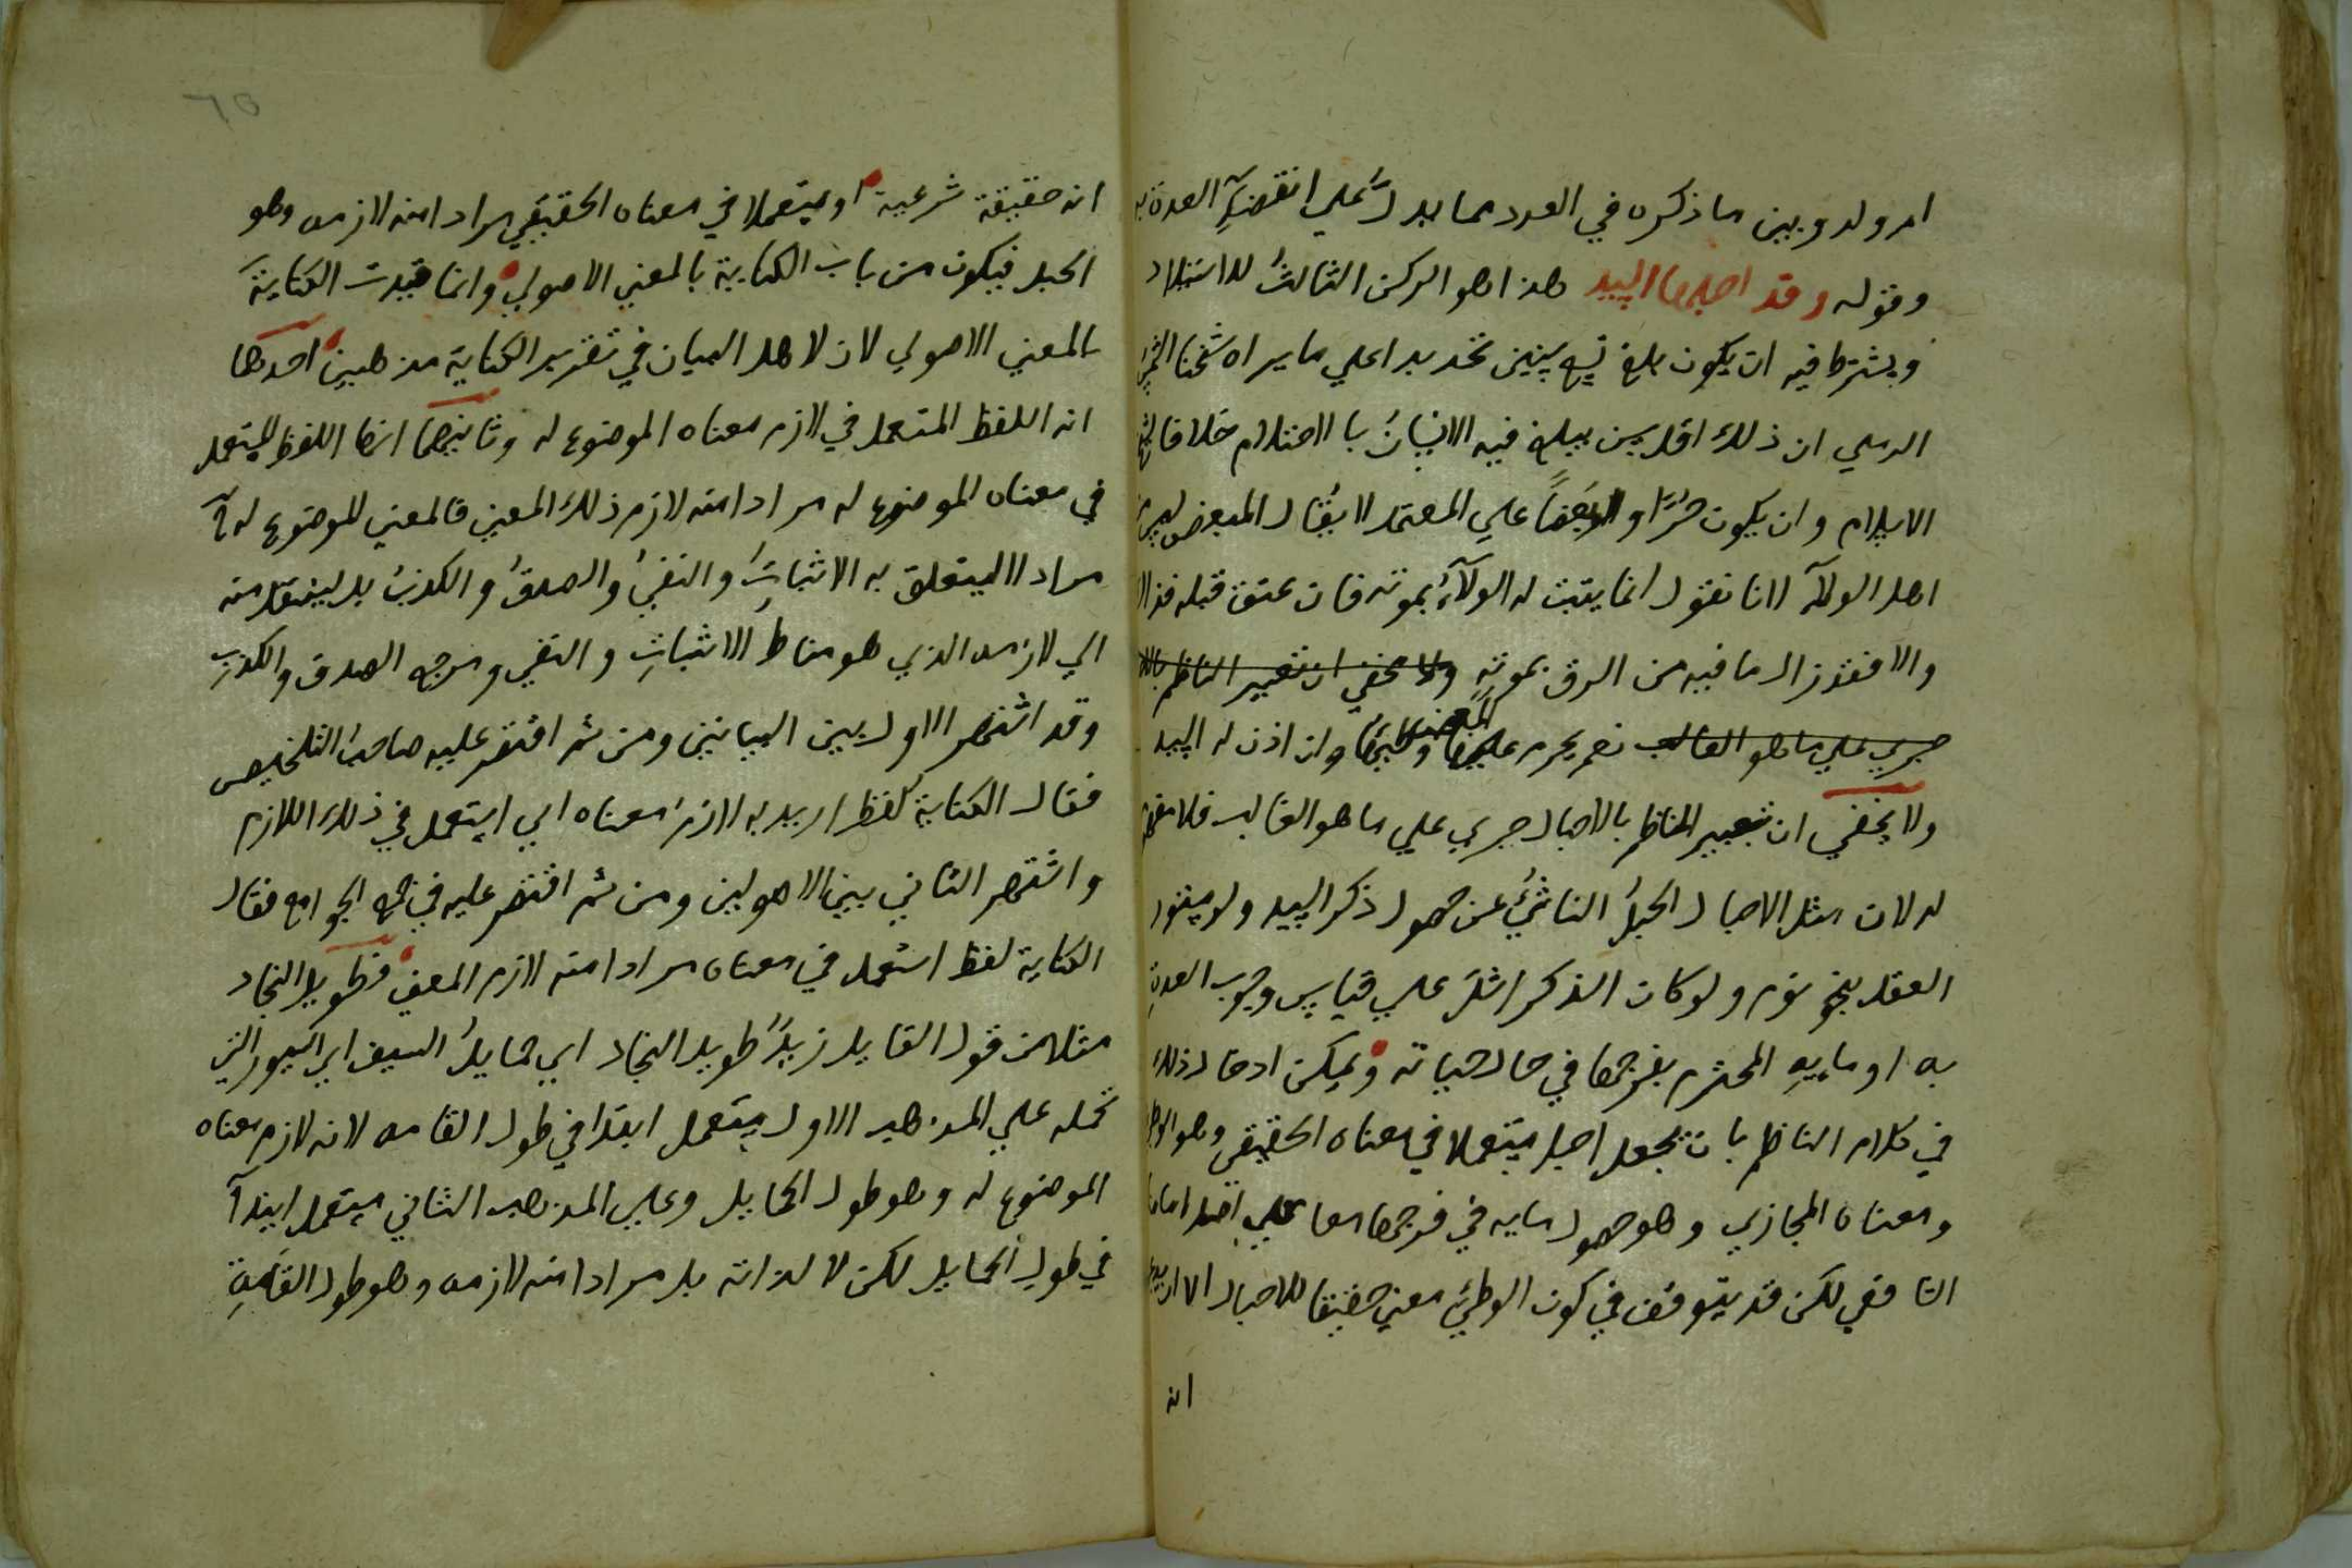 ام ولد وبين ما ذكره في العدد مما يدل علي انقضآء العدة به
وقوله وقد احبلها السيد هذا هو الركن الثالث للاستيلاد
ويشترط فيه ان يكون بلغ تسع سنين تحديدا علي ما يراه شيخنا
الرملي ان ذلك اقل سن يبلغ فيه الانسان بالاحتلام خلافا
الاسلام وان يكون حرًا او مبعضًا علي المعتمد لا يقال المبعض ليس من
اهل الولآء لانا نقول انما يثبت له الولآء بموته فان عتق قبله فذا
والا فقد زال ما فيه من الرق بموته ولا يخفي ان تعبير الناظم بالا
جري علي ما هو الغالب نعم يحرم علي المبعض وان اذن له السيد
ولا يخفي ان تعبير الناظم بالاحبال جري علي ما هو الغالب فلا مفهوم
له لان مثل الاحبال الحبلُ الناشئُ عن حصول ذكر السيد ولو مفقود
العقل بنحو نوم ولو كان الذكر اشلَ علي قياس وجوب العدة
به او مايه المحترم بفرجها في حال حياته ويمكن ادخال ذلك
في كلام الناظم بان نجعل احبل مستعملا في معناه الحقيقي وهو الوطء
ومعناه المجازي وهو حصول مايه في فرجها معا علي اصل امامنا
الشافعي لكن قد يتوقف في كون الوطئ معني حقيقيا للاحبال الا ان
انه
٦٥
انه حقيقة شرعية او مستعملا في معناه الحقيقي مرادا منه لازمه وهو
الحبل فيكون من باب الكناية بالمعني الاصولي وانما قيدت الكناية
بالمعني الاصولي لان لاهل البيان في تقرير الكناية مذهبين احدهما
انه اللفظ المستعمل في لازم معناه الموضوع له وثانيهما انها اللفظ المستعمل
في معناه الموضوع له مرادا منه لازم ذلك المعني فالمعني الموضوع له
مراد لا ليتعلق به الاثباتُ والنفيُ والصدقُ والكذبُ بل لينتقل منه
الي لازمه الذي هو مناط الاثباتِ والنفي ومرجع الصدق والكذبِ
وقد اشتهر الاول بين البيانيين ومن ثم اقتصر عليه صاحبُ التلخيص
فقال الكناية لفظ اريد به لازم معناه اي استعمل في ذلك اللازم
واشتهر الثاني بين الاصولين ومن ثم اقتصر عليه في جمع الجوامع فقال
الكناية لفظ استعمل في معناه مرادا منه لازم المعني فطويل النجاد
مثلا من قول القايل زيدٌ طويل النجاد اي حمايلُ السيف اي السيور التي
تحمله علي المذهب الاول يستعمل ابتدا في طول القامه لانه لازم معناه
الموضوع له وهو طول الحمايل وعلي المذهب الثاني يستعمل ابتدآ
في طول الحمايل لكن لا لذاته بل مرادا منه لازمه وهو طول القامةِ